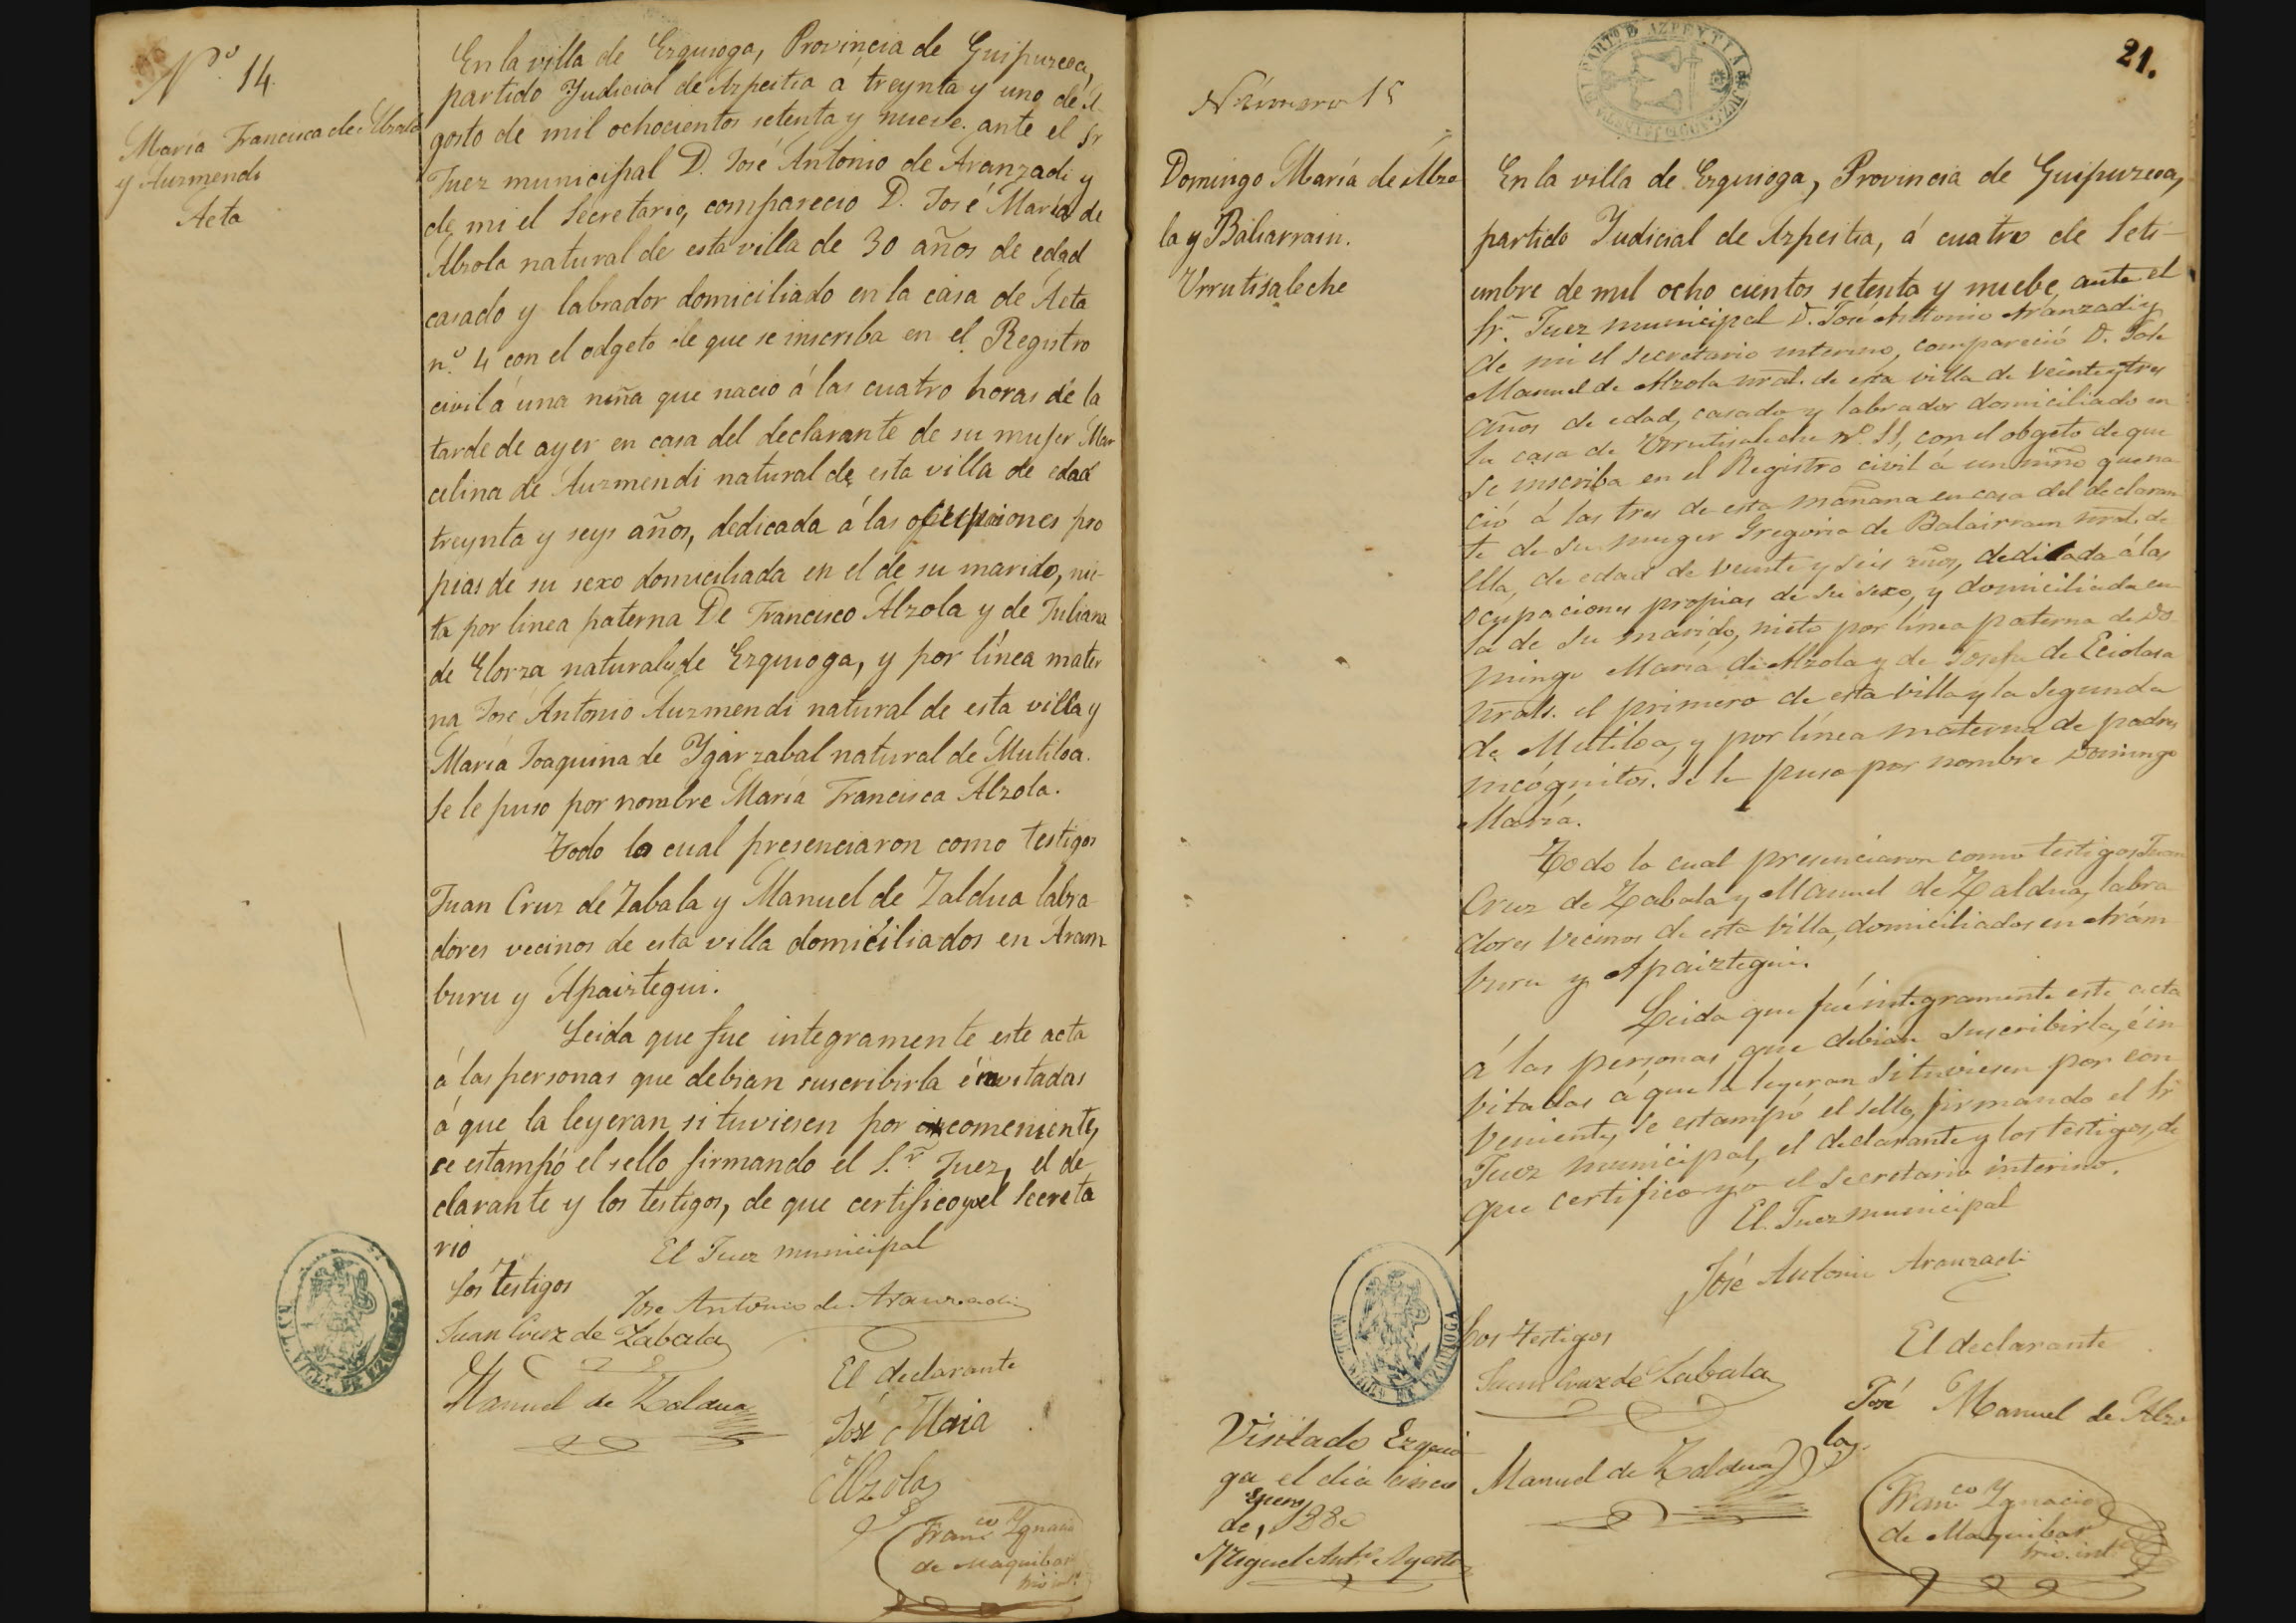 Nº 14.
María Francisca de Alzola
y Auzmendi
Aeta
En la villa de Ezquioga, Provincia de Guipuzcoa,
partido Judicial de Azpeitia a treynta y uno de A-
gosto de mil ochocientos setenta y nueve. ante el Sr
Juez municipal D. José Antonio de Aranzadi y
de mi el Secretario, comparecio D. José María de
Alzola natural de esta villa de 30 años de edad
casado y labrador domiciliado en la casa de Aeta
n.º 4 con el odgeto de que se inscriba en el Registro
civil á una niña que nació á las cuatro horas de la
tarde de ayer en casa del declarante de su mujer Mar
celina de Auzmendi natural de esta villa de edad
treynta y seys años, dedicada á las ocupaiones pro
pias de su sexo domiciliada en el de su marido, nie-
ta por linea paterna De Francisco Alzola y de Juliana
de Elorza naturales de Ezquioga, y por línea mater
na José Antonio Auzmendi natural de esta villa y
María Joaquina de Ygarzabal natural de Mutiloa.
Se le puso por nombre María Francisca Alzola.
Todo lo cual presenciaron como testigos
Juan Cruz de Zabala y Manuel de Zaldua labra
dores vecinos de esta villa domiciliados en Aram
buru y Apaiztegui.
Leida que fue integramente este acta
á las personas que debian suscribirla é invitadas
á que la leyeran, si tuviesen por comeniente,
se estampó el sello firmando el S.r Juez, el de-
clarante y los testigos, de que certifico yo el Secreta
rio
El Juez municipal
Los testigos
Jose Antonio de Aranzadi
Juan Cruz de Zabala
El declarante
Manuel de Zaldua
José Maria
Alzola
Fran.co Ygnacio
de Maquibar
Srio int.º
21.
PART.º DE AZPEYTIA
JUZG
Número 15
Domingo María de Alzo
la y Baliarrain.
Urrutisaleche
En la villa de Ezquioga, Provincia de Guipuzcoa,
partido Judicial de Azpeitia, á cuatro de Seti-
embre de mil ocho cientos setenta y nuebe, ante el
Sr. Juez municipal D. José Antonio Aránzadi y
de mi el secretario interino, compareció D. José
Manuel de Alzola nral. de esta villa de veinte y tres
años de edad, casado y labrador domiciliado en
la casa de Urrutisaleche nº 11, con el obgeto de que
se inscriba en el Registro civil á un niño que na
ció á las tres de esta mañana en casa del declaran
te de su muger Gregoria de Balairrain nral. de
ella, de edad de veinte y seis años, dedicada á las
ocupaciones propias de su sexo, y domiciliada en
la de su marido, nieto por línea paterna de Do
mingo María de Alzola y de Josefa de Eciolaza
nrals. el primero de esta villa y la segunda
de Mutiloa, y por línea materna de padres
incógnitos. Se le puso por nombre Domingo
María.
Todo lo cual presenciaron como testigos Juan
Cruz de Zabala y Manuel de Zaldua, labra
dores vecinos de esta villa, domiciliados en Arám
buru y Apaiztegui.
Leida que fué integramente este acta
á las personas que debian suscribirla, é in
vitadas á que la leyeran si tuviesen por con
veniente, se estampó el sello, firmando el Sr
Juez municipal, el declarante y los testigos, de
que certifico yo el secretario interino.
El Juez municipal
José Antonio Aranzadi
Los testigos
El declarante
Juan Cruz de Zabala
José Manuel de Alzo
la
Manuel de Zaldua
Fran.co Ygnacio
de Maquibar
Srio. int.
Visitado Ezquio
ga el dia cinco
Enero
de 1880
Miguel Ant.º Ayesta